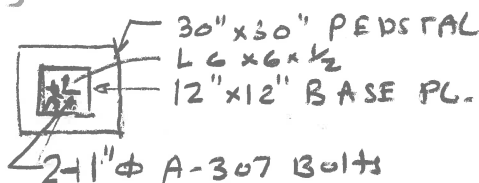 30"x30" PEDSTAL
L 6 x6x1/2
12"x12" BASE PL.
2-1"Φ A-307 Bolts